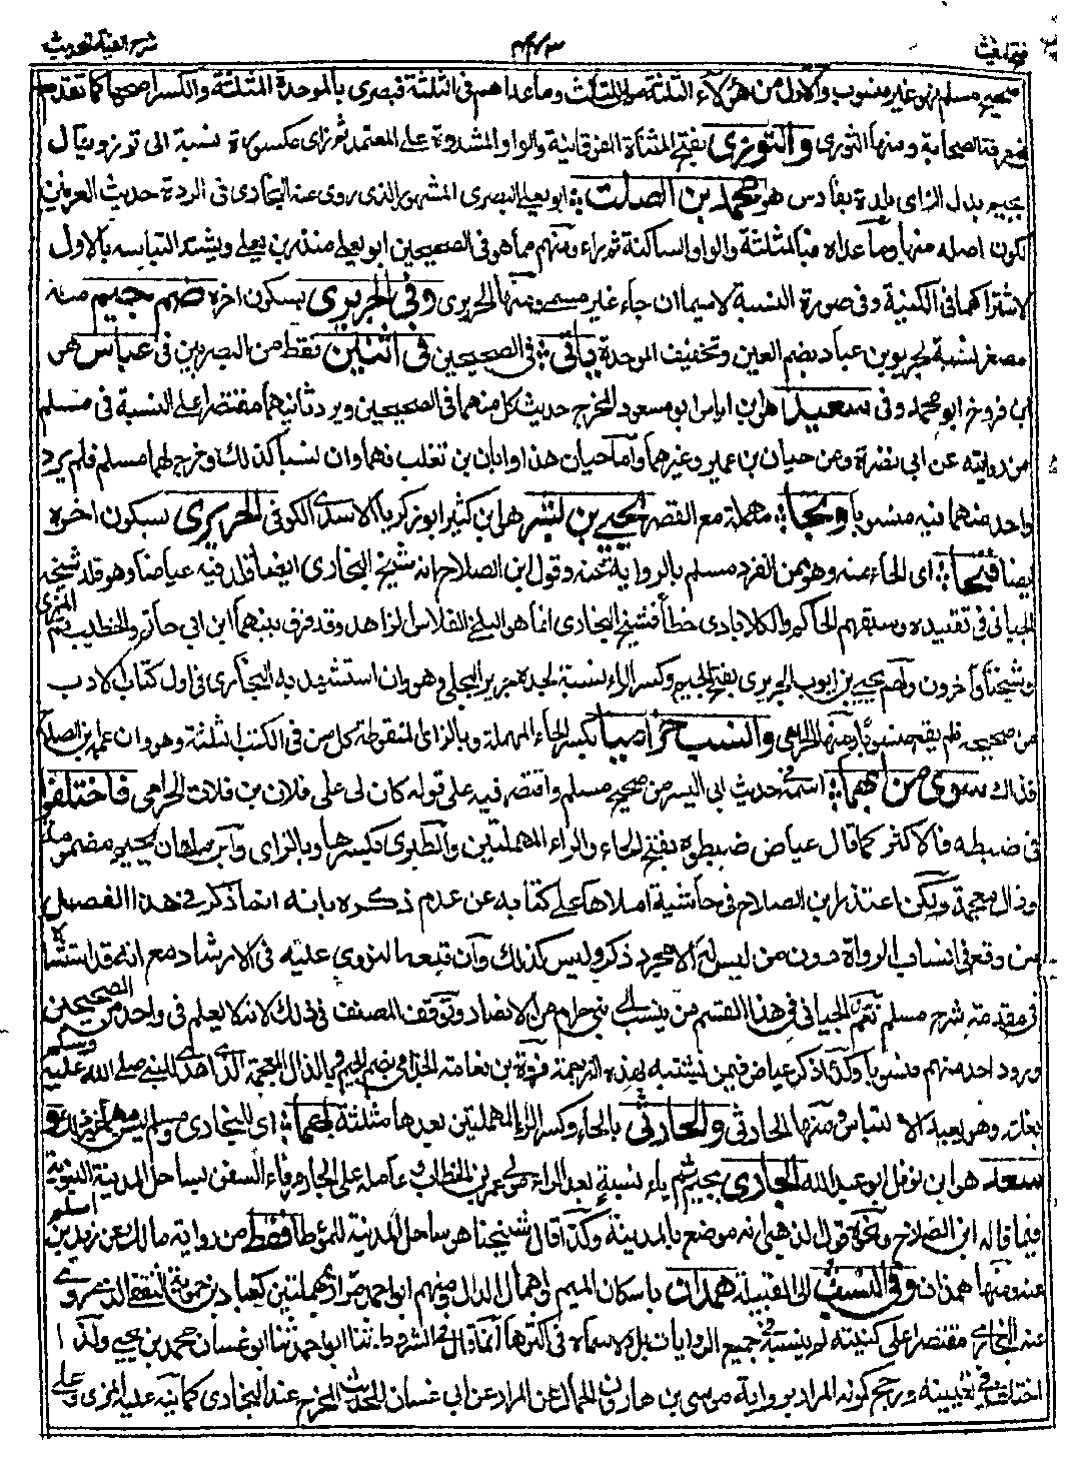 فتح المغيث ٤٤٣ شرح الفية الحديث
صحيح مسلم فهو غير منسوب والاول من هؤلاء الثلثة مولى الثالث وما عداهم فى الثلثة فبصرى بالموحدة المثلثة والكسر اصحها كما تقدم
بمعرفة الصحابة ومنها الثورى والتوزى بفتح المثناة الفوقانية والواو المشددة على المعتمد ثم زاى مكسورة نسبة الى توز ويقال
بجيم بدل الزاى بلدة بفارس هو محمد بن الصلت ابو يعلى البصرى المشهور الذى روى عنه البخارى فى الردة حديث العرنيين
لكون اصله منها وما عداه فبالمثلثة والواو الساكنة ثم راء ومنهم مما هو فى الصحيحين ابو يعلى منذر بن يعلى ويشتد التباسه بالاول
لاشتراكهما فى الكنية وفى صورة النسبة لاسيما ان جاء غير مسمى ومنها الحريرى وفى الجريرى بسكون اخره ضم جيم منه
مصغر نسبة لجرير بن عباد بضم العين وتخفيف الموحدة ياتى فى الصحيحين فى اثنين فقط من البصريين فى عباس هو
ابن فروخ ابو محمد وفى سعيد هو ابن اياس ابو مسعود المخرج حديث كل منهما فى الصحيحين ويرد ثانيهما مقتصرا على النسبة فى مسلم
من روايته عن ابى نضرة وعن حيان بن عمير وغيرهما واما حيان هذا وابان بن تغلب فهما وان نسبا كذلك وخرج لهما مسلم فلم يرد
واحد منهما فيه منسوبا وبحا مهملة مع القصر يحيى بن بشر هو ابن كثير ابو زكريا الاسدى الكوفى الحريرى بسكون اخره
ايضا فتحا اى الحاء منه وهو ممن انفرد مسلم بالرواية عنه وقول ابن الصلاح انه شيخ البخارى ايضا قلد فيه عياضا وهو قلد شيخه
الجيانى فى تقييده وسبقهم الحاكم والكلاباذى خطأ فشيخ البخارى انما هو البلخى الفلاس الزاهد وقد فرق بينهما ابن ابى حاتم والخطيب ثم المزى
وشيخنا وآخرون ولهم يحيى بن ايوب الجريرى بفتح الجيم وكسر الراء نسبة لجده جرير البجلى وهو وان استشهد به البخارى فى اول كتاب الادب
من صحيحه فلم يقع منسوبا ومنها الحرامى وانسب حزاميا بكسر الحاء المهملة وبالزاى المنقوطة كل من فى الكتب الثلثة وهو وان عمه ابن الصلاح
فذاك سوى من ابهما اسمه فى حديث ابى اليسر من صحيح مسلم واقتصر فيه على قوله كان لى على فلان بن فلان الحرامى فاختلفوا
فى ضبطه فالاكثر كما قال عياض ضبطوه بفتح الحاء والراء المهملتين والطبرى بكسرها وبالزاى وابن ماهان بجيم مضمومة
وذال معجمة ولكن اعتذر ابن الصلاح فى حاشية املاها على كتابه عن عدم ذكره بانه انما ذكر فى هذا الفصل
من وقع فى انساب الرواة دون من ليس له الا مجرد ذكر وليس كذلك وان تبعه النووى عليه فى الارشاد مع انه قد استثناه
فى مقدمة شرح مسلم نعم الجيانى فى هذا القسم من ينسب الى بنى حرام من الانصار وتوقف المصنف فى ذلك لانه لا يعلم فى واحد من الصحيحين
ورود احد منهم منسوبا وكذا ذكر عياض فيمن يشتبه بهذه الترجمة فروة بن نعامة الجذامى بضم الجيم وبالذال المعجمة الذى اهدى للنبى صلى الله عليه وسلم
بغلته وهو بعيد الالتباس ومنها الحارثى والحارثى بالحاء وكسر الراء المهملتين بعدها مثلثة لهما اى للبخارى ومسلم ليس فيهما غير ذلك و
سعد هو ابن نوفل ابو عبد الله الجارى بجيم ثم ياء نسبة بعد الراء مولى عمر بن الخطاب وعامله على الجار مرفاء السفن بساحل المدينة النبوية
فيما قاله ابن الصلاح ونحوه قول الذهبى انه موضع بالمدينة وكذا قال شيخنا هو ساحل المدينة للموطا فقط من رواية مالك عن زيد بن اسلم
عنه ومنها همذان وفى النسب الى القبيلة همدان باسكان الميم واهمال الدال ومنهم ابو احمد مرار بمهملتين كعباد بن حموية الثقفى الذى روى
عنه البخارى مقتصرا على كنيته لم ينسبه فى جميع الروايات بل ولا سماه فى اكثرها انما قال فى الشروط ثنا ابو احمد ثنا ابو غسان محمد بن يحيى ولذا
اختلف فى تعيينه ورجح كونه المرار برواية موسى بن هارون الحمال عن المرار عن ابى غسان للحديث المخرج عند البخارى كما نبه عليه المزى وعلى